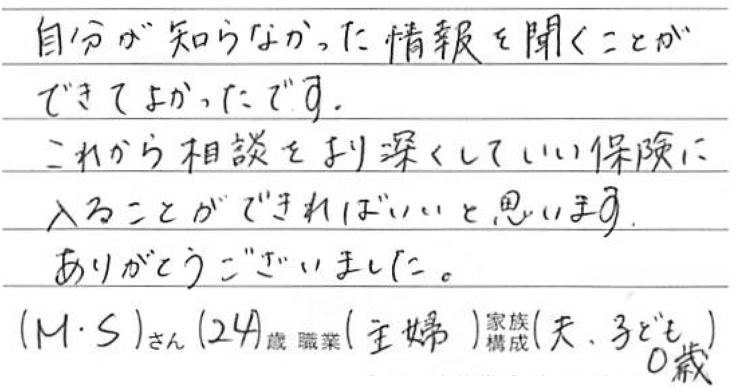 自分が知らなかった情報を聞くことが
できてよかったです.
これから相談をより深くしていい保険に
入ることができればいいと思います.
ありがとうございました。
(M・S)さん(24)歳 職業(主婦)家族構成(夫、子ども0歳)